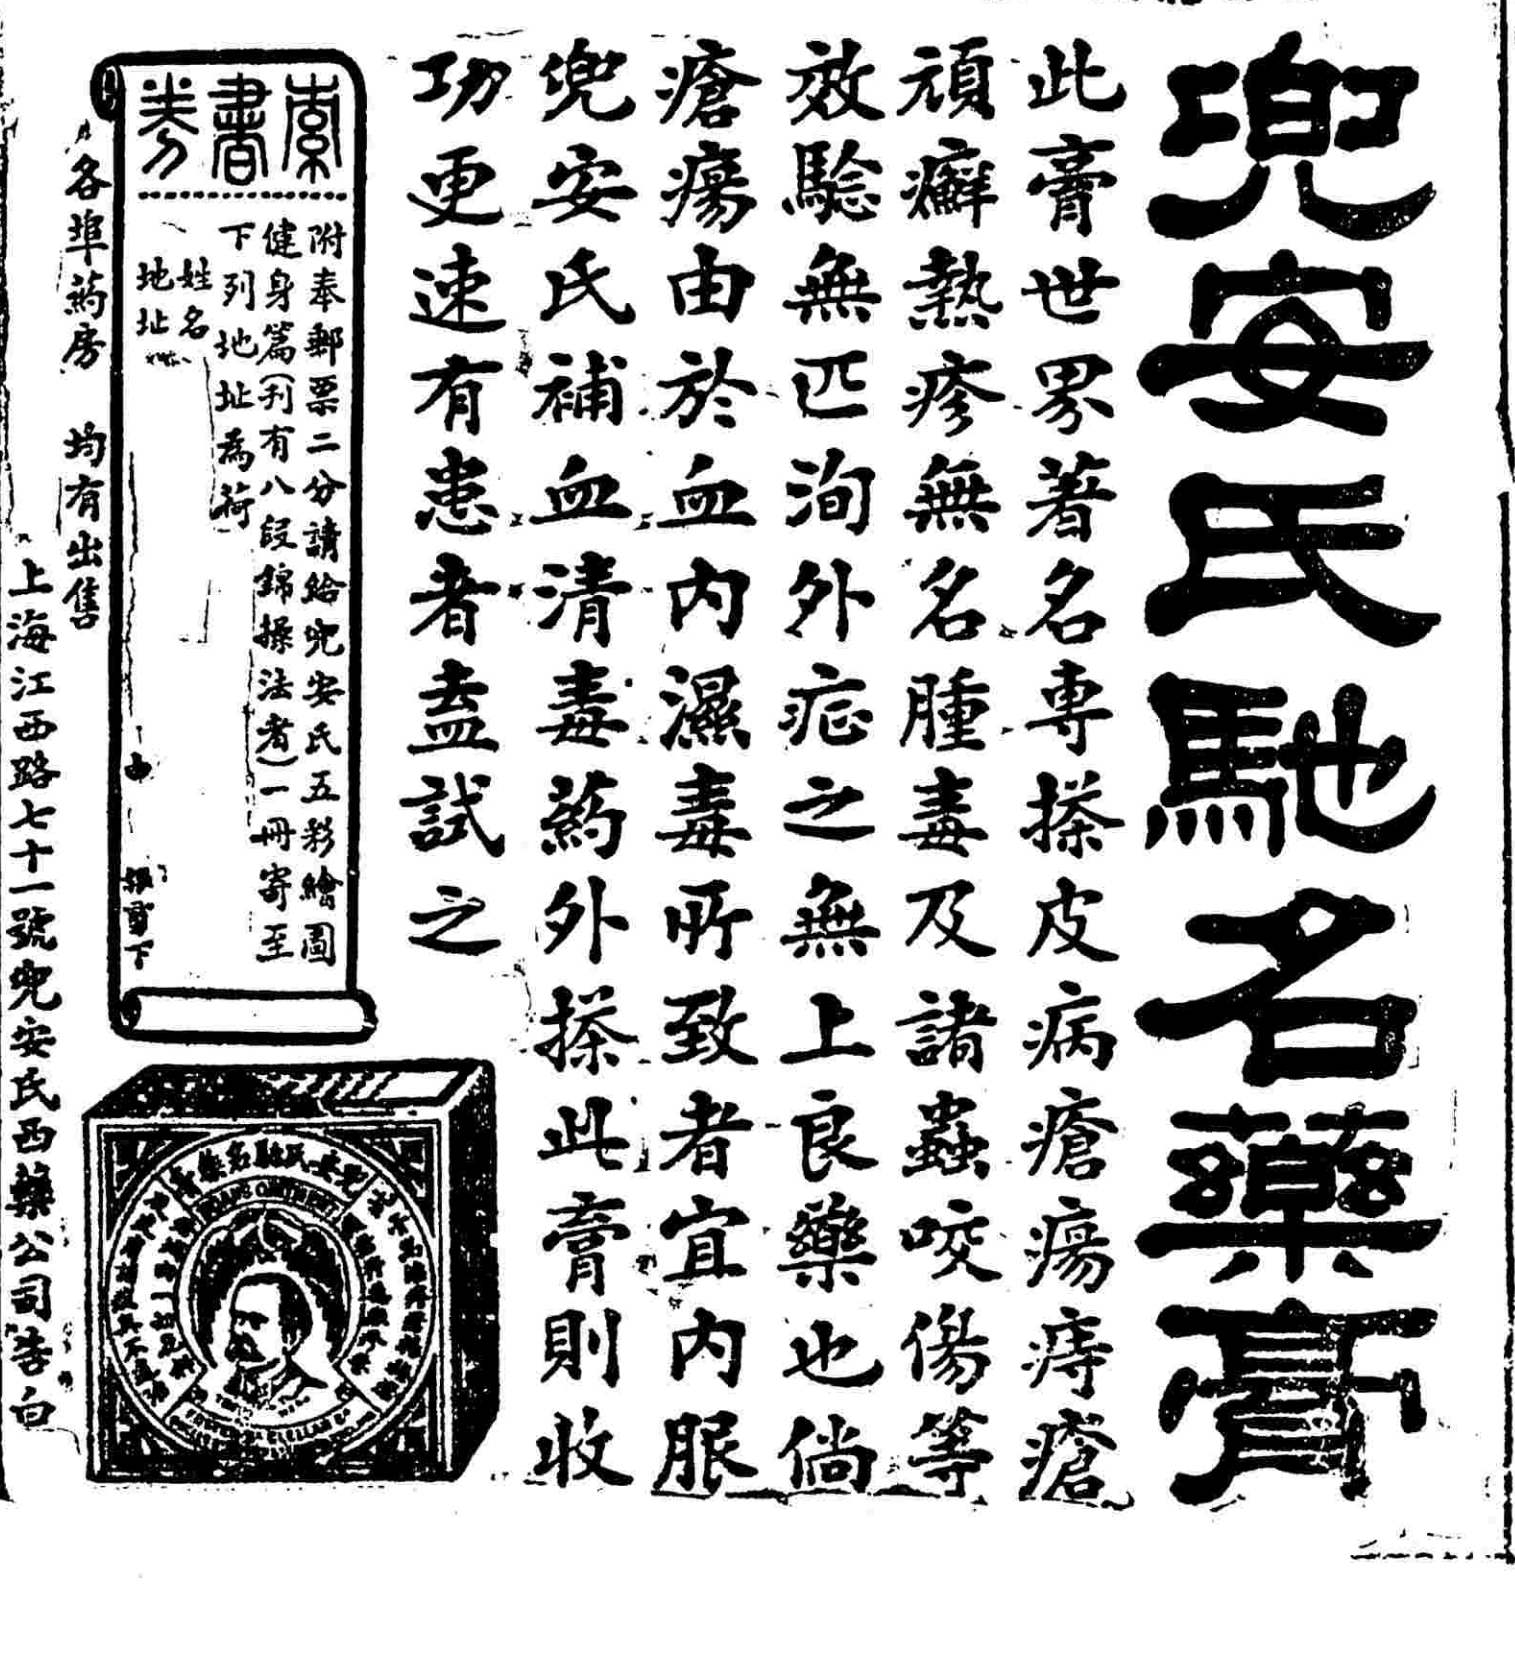 兜安氏馳名藥膏
此膏世界著名專搽皮病瘡瘍痔瘡
頑癬熱疹無名腫毒及諸蟲咬傷等
效驗無匹洵外症之無上良藥也倘
瘡瘍由於血內濕毒所致者宜內服
兜安氏補血清毒葯外搽此膏則收
功更速有患者盍試之
索書券
附奉郵票二分請給兜安氏五彩繪圖
健身篇(刋有八段錦操法者)一冊寄至
下列地址為荷
姓名
地址
由
報剪下
各埠葯房 均有出售
上海江西路七十一號兜安氏西藥公司告白
兜安氏馳名藥膏
DOAN'S OINTMENT